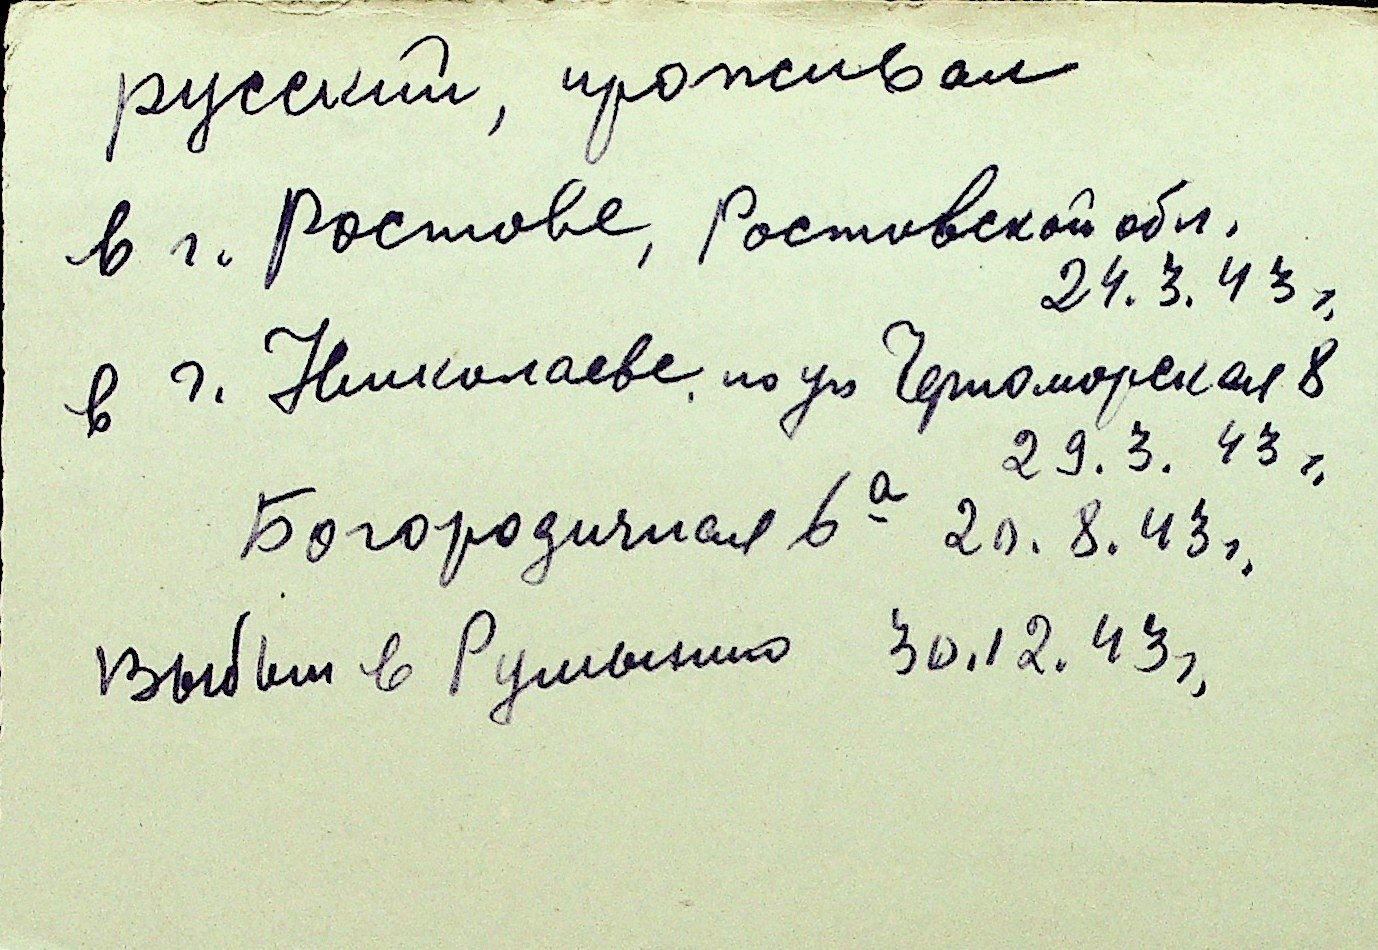 русский, проживал
в г. Ростове, Ростовской обл.
24.3.43 г.
в г. Николаеве по ул Черноморская 8
29.3.43 г.
Богородичная 6а 20.8.43 г.
Выбыл в Румынию 30.12.43 г.